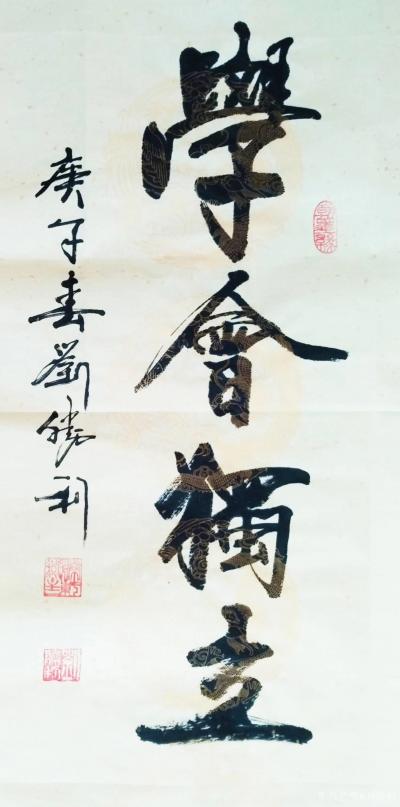 學會獨立
庚午春劉勝利